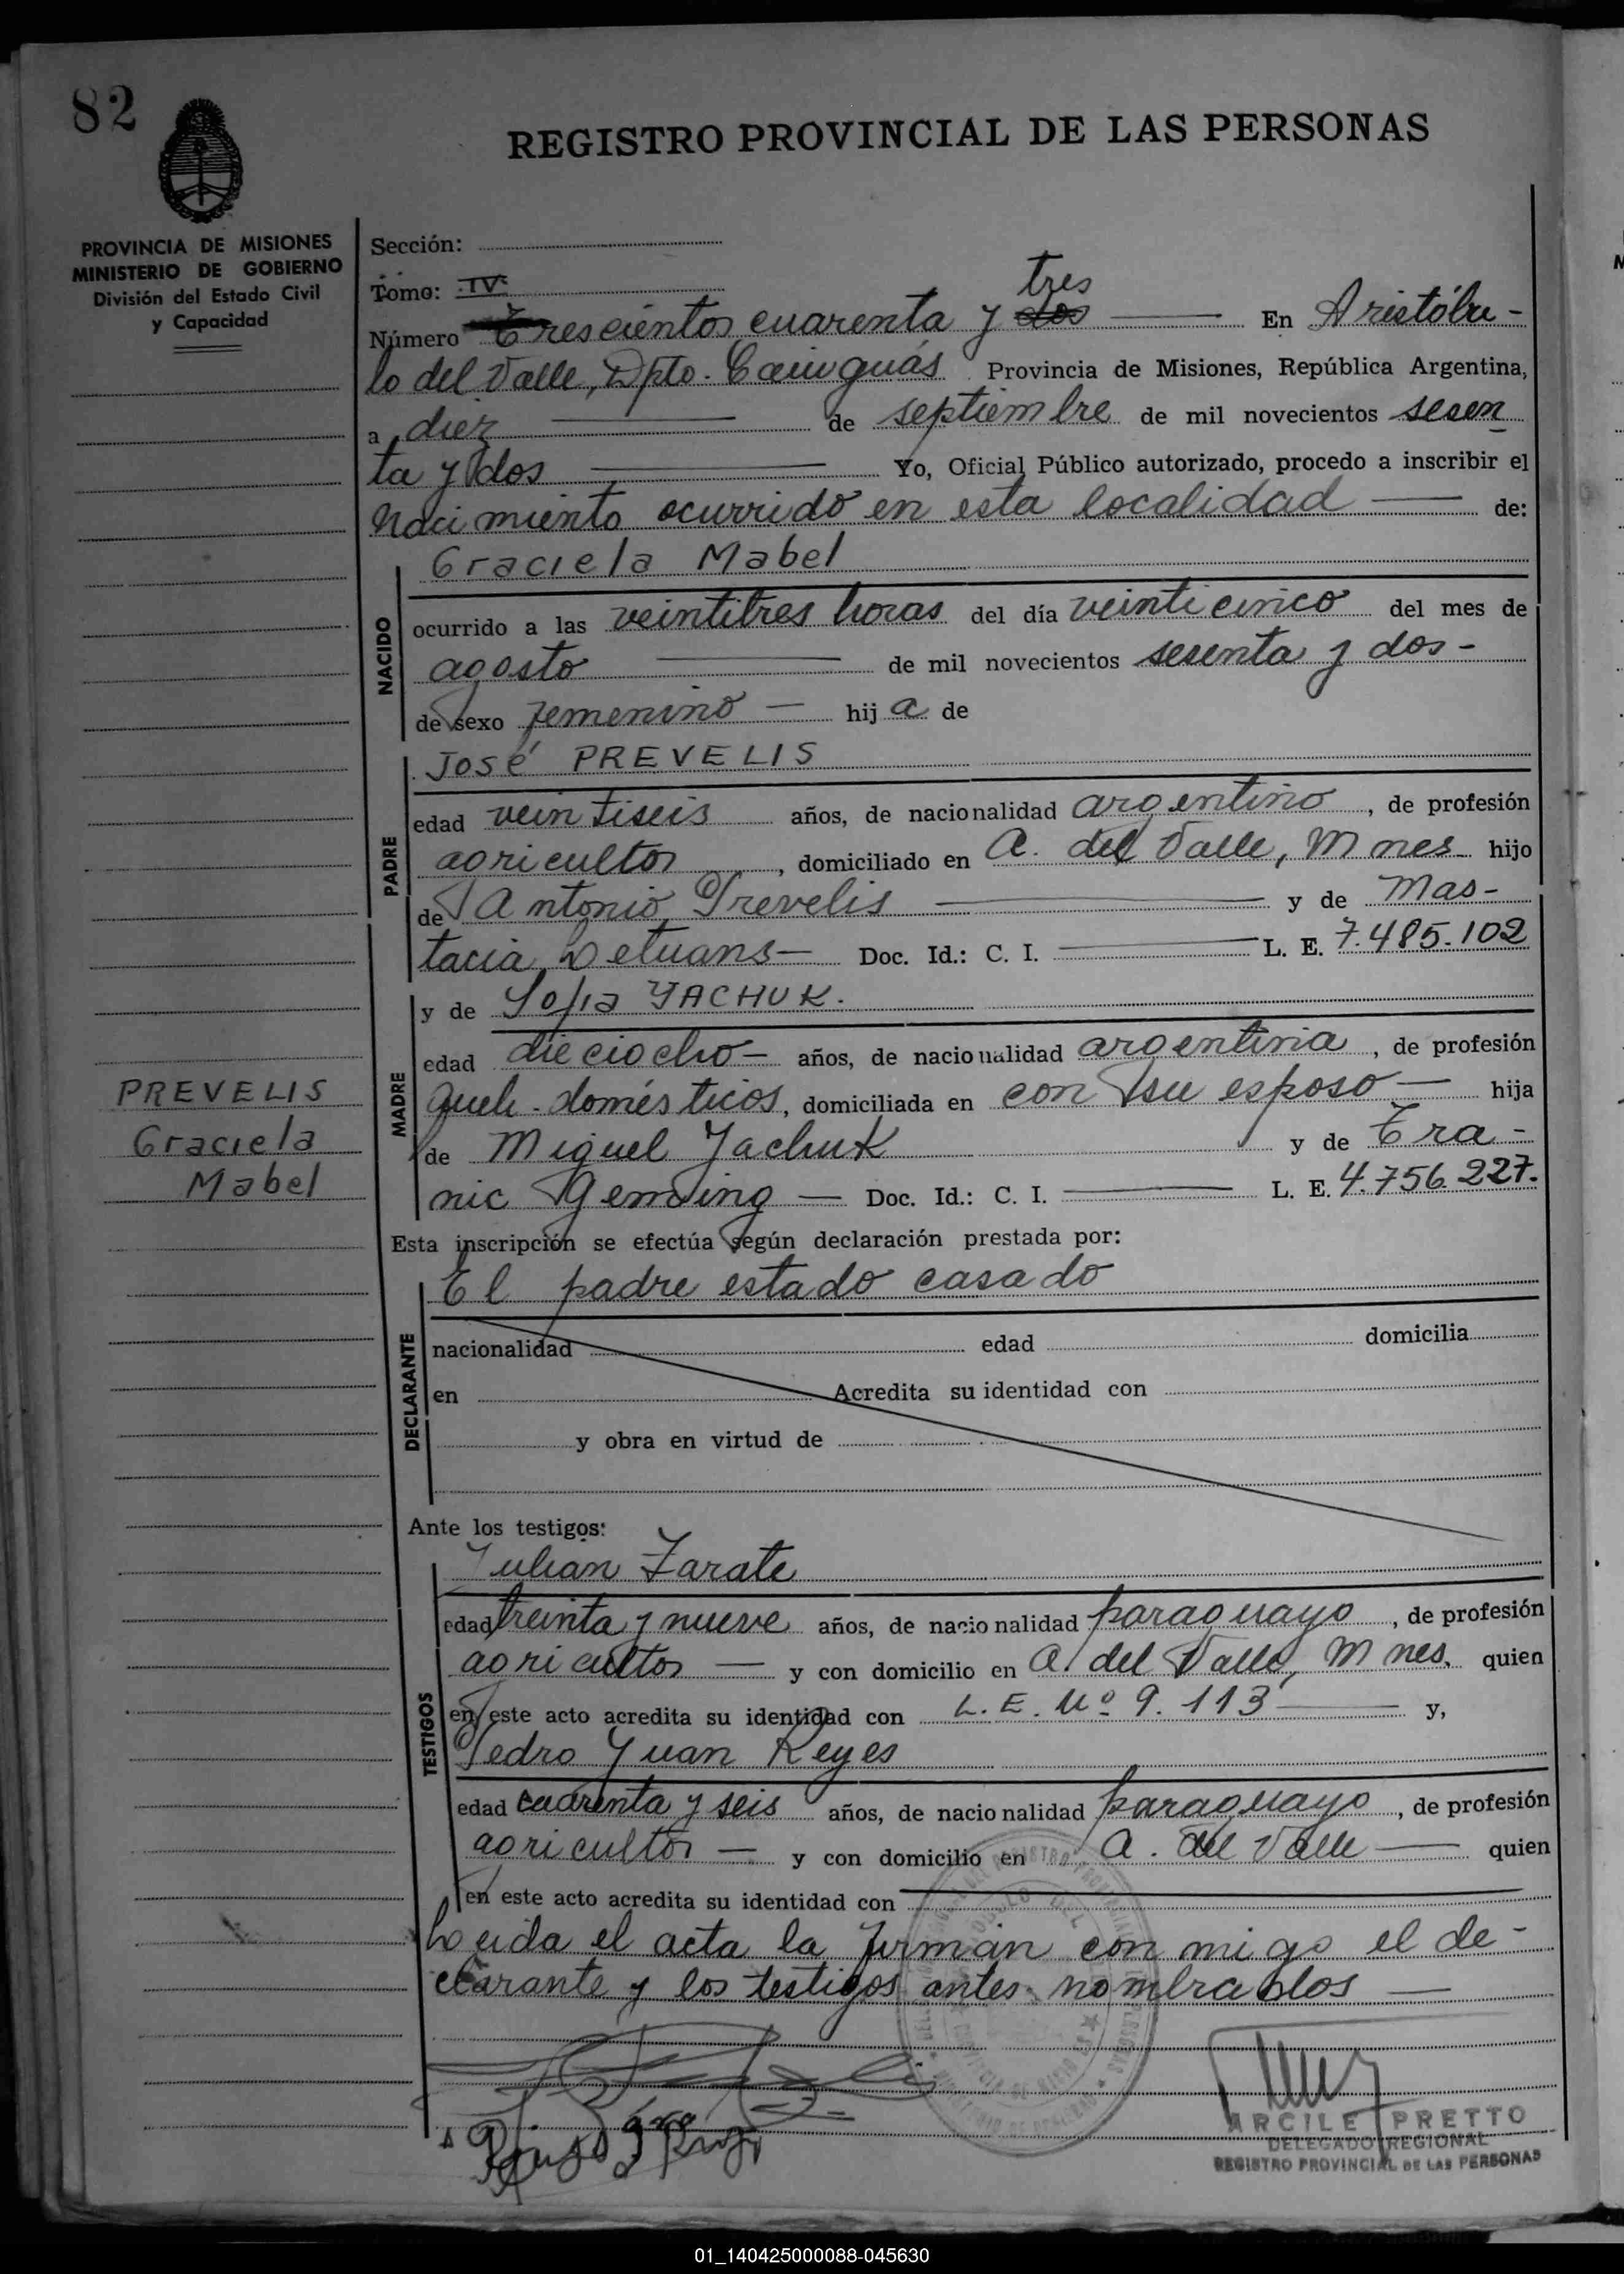 82
REGISTRO PROVINCIAL DE LAS PERSONAS
PROVINCIA DE MISIONES
MINISTERIO DE GOBIERNO
División del Estado Civil
y Capacidad
Sección:
Tomo: IV
tres
Número Trescientos cuarenta y dos En Aristóbu-
lo del Valle, Dpto. Cainguás Provincia de Misiones, República Argentina,
a diez de septiembre de mil novecientos sesen
ta y dos Yo, Oficial Público autorizado, procedo a inscribir el
nacimiento ocurrido en esta localidad de:
Graciela Mabel
NACIDO
ocurrido a las veintitres horas del día veinticinco del mes de
agosto de mil novecientos sesenta y dos -
de sexo femenino - hij a de
José PREVELIS
PADRE
edad veintiseis años, de nacionalidad argentino, de profesión
agricultor, domiciliado en A. del Valle, Mnes hijo
de Antonio Prevelis y de Mas-
tacia Doc. Id.: C. I. L. E. 7.485.102
y de Sofia YACHUK.
MADRE
edad dieciocho - años, de nacionalidad argentina, de profesión
queh. domésticos, domiciliada en con su esposo - hija
de Miguel Yachuk y de Tra-
nic Doc. Id.: C. I. L. E. 4.756.227.
PREVELIS
Graciela
Mabel
Esta inscripción se efectúa según declaración prestada por:
El padre estado casado
DECLARANTE
nacionalidad edad domicilia
en Acredita su identidad con
y obra en virtud de
Ante los testigos:
Julian Zarate
TESTIGOS
edad treinta y nueve años, de nacionalidad paraguayo, de profesión
agricultor - y con domicilio en A. del Valle, Mnes. quien
en este acto acredita su identidad con L. E. Nº 9.113 y,
Pedro Juan Reyes
edad cuarenta y seis años, de nacionalidad paraguayo, de profesión
agricultor - y con domicilio en A. del Valle quien
en este acto acredita su identidad con
Leida el acta la firman con migo el de-
clarante y los testigos antes nombrados
ARCILE PRETTO
DELEGADO REGIONAL
REGISTRO PROVINCIAL DE LAS PERSONAS
01_140425000088-045630